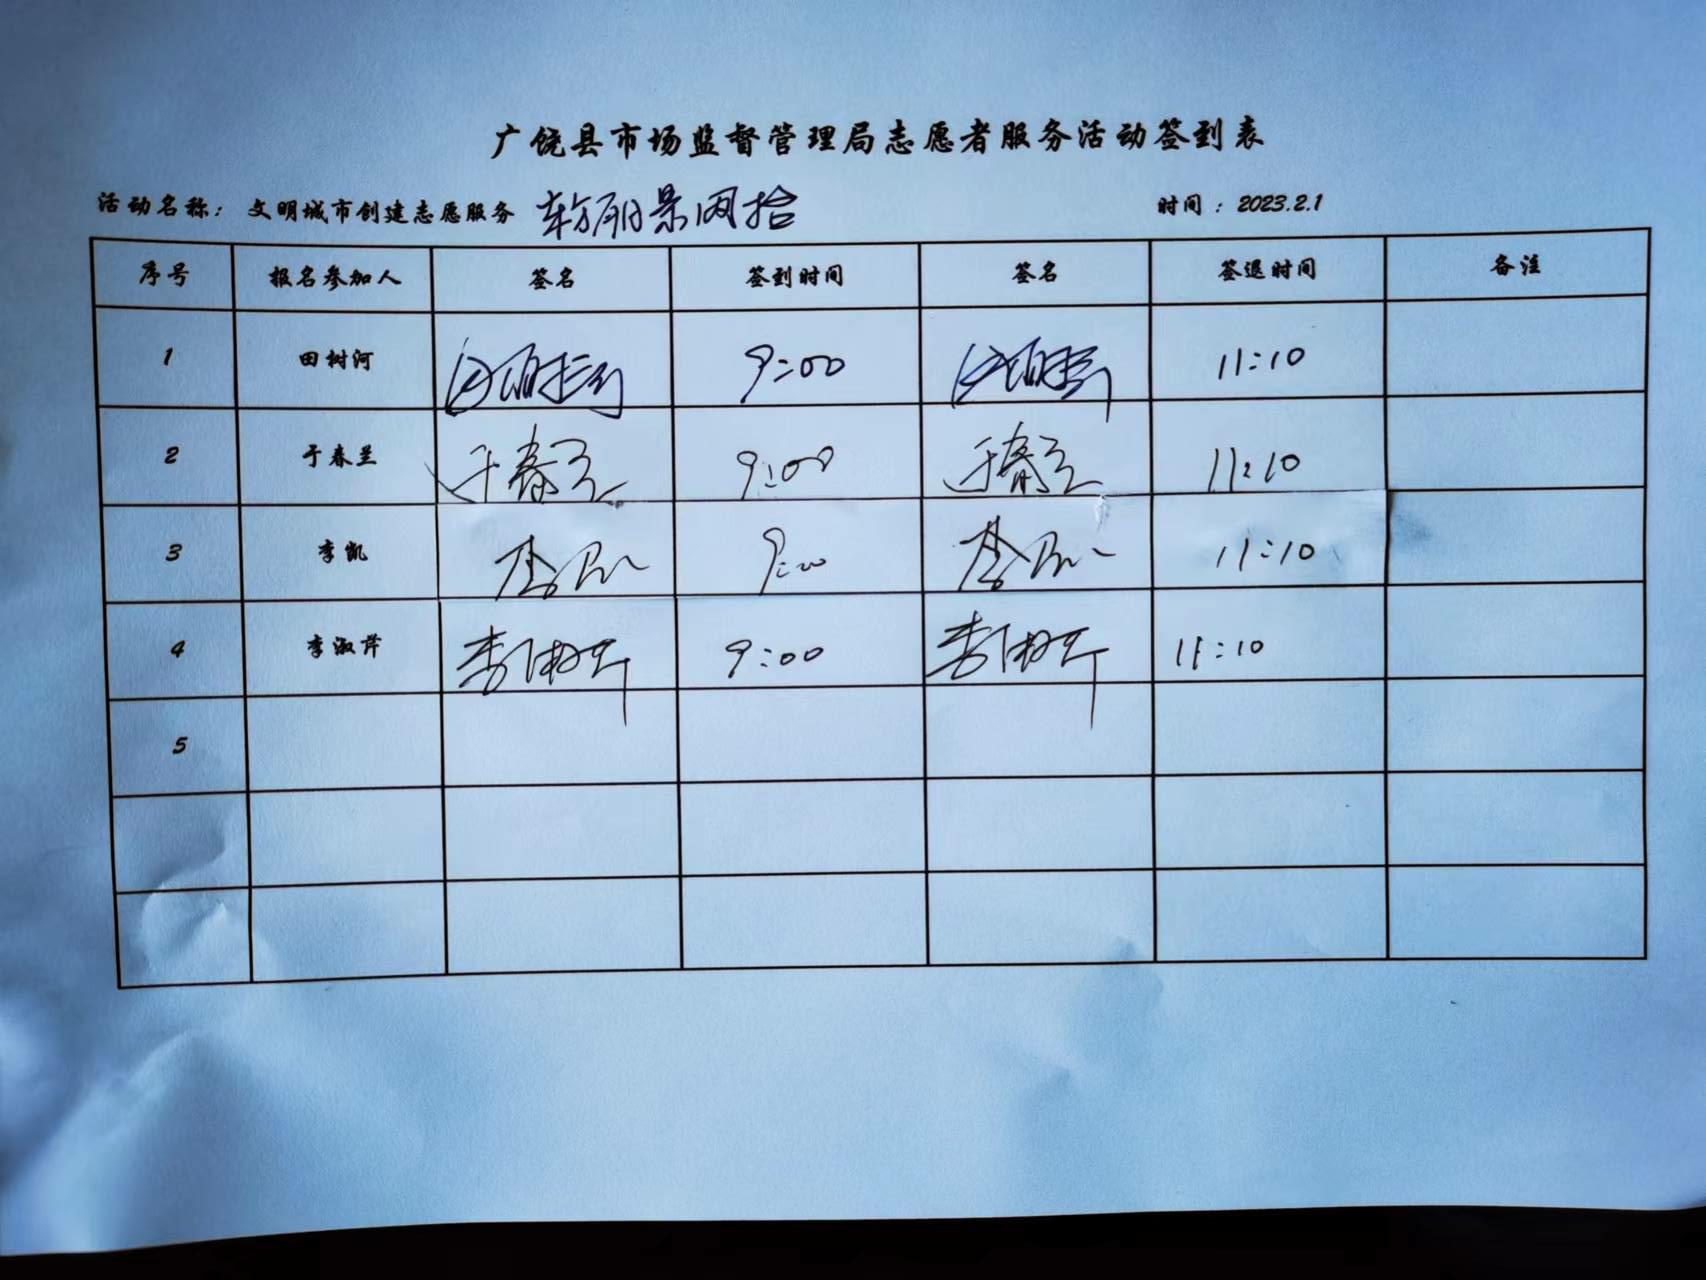 广饶县市场监督管理局志愿者服务活动签到表
活动名称：文明城市创建志愿服务 时间：2023.2.1
序号 报名参加人 签名 签到时间 签名 签退时间 备注
1 田树河 田树河 9:00 田树河 11:10
2 于春兰 于春兰 9:00 于春兰 11:10
3 李凯 李凯 9:00 李凯 11:10
4 李淑芹 李淑芹 9:00 李淑芹 11:10
5